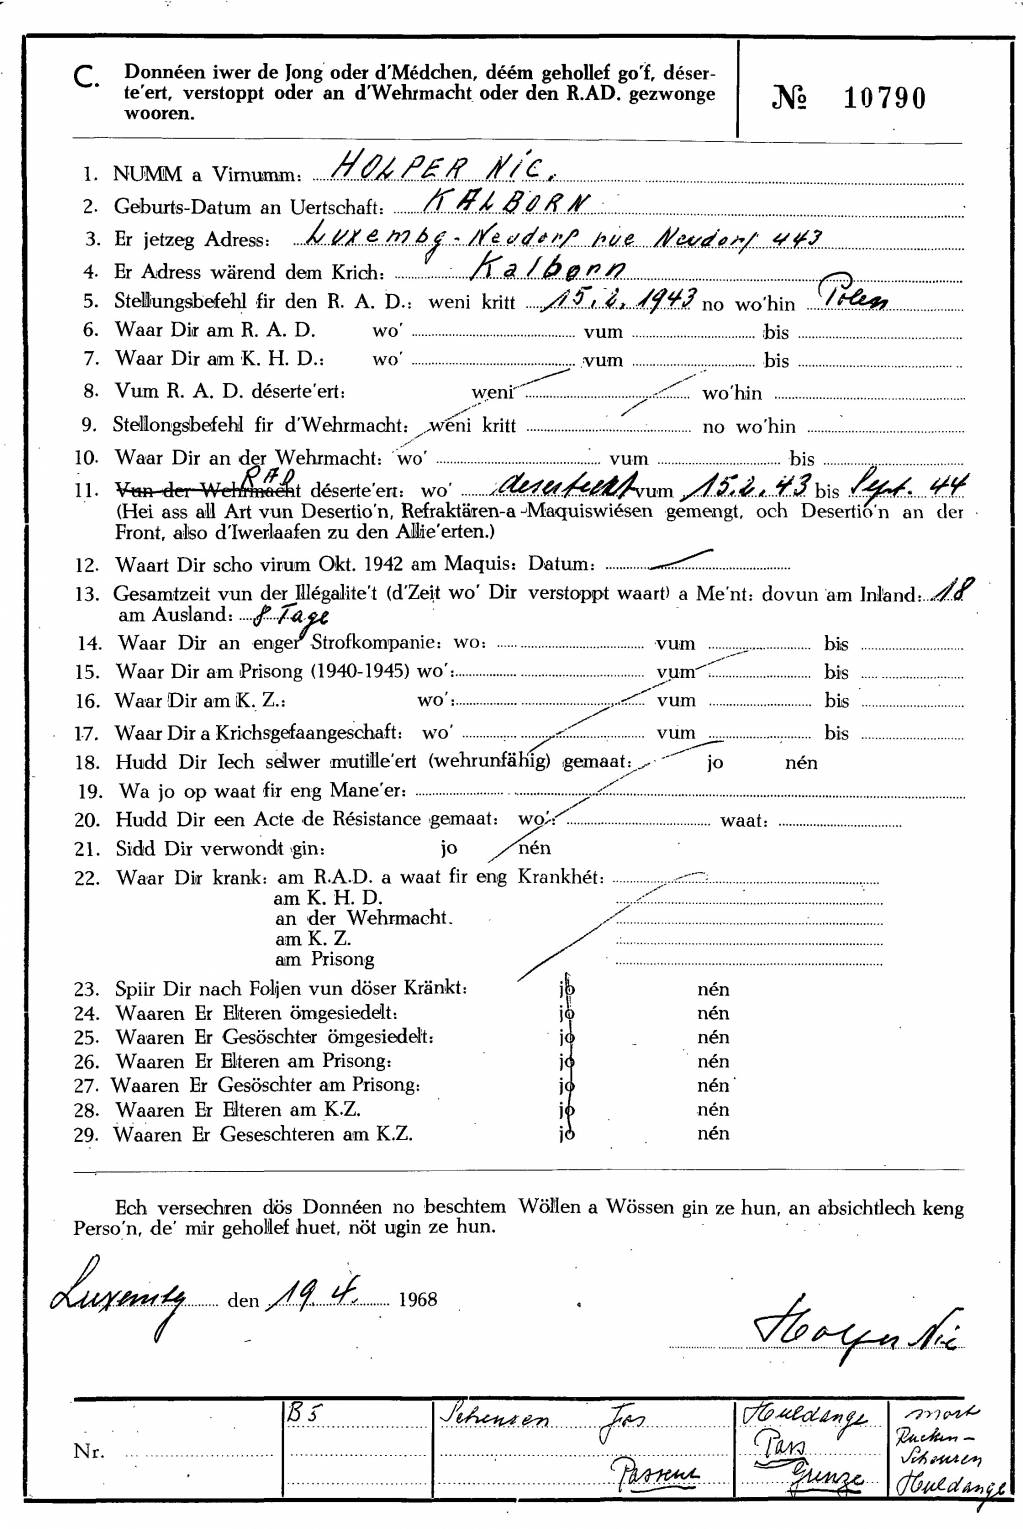 C. Donnéen iwer de Jong oder d'Médchen, déém gehollef go'f, déser-
te'ert, verstoppt oder an d'Wehrmacht oder den R.AD. gezwonge
wooren.
№ 10790
1. NUMM a Virnumm: HOLPER NIC.
2. Geburts-Datum an Uertschaft: KALBORN
3. Er jetzeg Adress: Luxembg-Neudorf rue Neudorf 443
4. Er Adress wärend dem Krich: Kalborn
5. Stellungsbefehl fir den R. A. D.: weni kritt 15.2.1943 no wo'hin Polen
6. Waar Dir am R. A. D. wo' vum bis
7. Waar Dir am K. H. D.: wo' vum bis
8. Vum R. A. D. déserte'ert: weni wo'hin
9. Stellongsbefehl fir d'Wehrmacht: weni kritt no wo'hin
10. Waar Dir an der Wehrmacht: wo' vum bis
RAD
11. Vun der Wehrmacht déserte'ert: wo' vum 15.2.43 bis Sept. 44
(Hei ass all Art vun Desertio'n, Refraktären-a -Maquiswiésen gemengt, och Desertio'n an der
Front, also d'Iwerlaafen zu den Allie'erten.)
12. Waart Dir scho virum Okt. 1942 am Maquis: Datum:
13. Gesamtzeit vun der Illégalite't (d'Zeit wo' Dir verstoppt waart) a Me'nt: dovun am Inland: 18
am Ausland: 8 Tage
14. Waar Dir an enger Strofkompanie: wo: vum bis
15. Waar Dir am Prisong (1940-1945) wo': vum bis
16. Waar Dir am K. Z.: wo': vum bis
17. Waar Dir a Krichsgefaangeschaft: wo' vum bis
18. Hudd Dir Iech selwer mutille'ert (wehrunfähig) gemaat: jo nén
19. Wa jo op waat fir eng Mane'er:
20. Hudd Dir een Acte de Résistance gemaat: wo': waat:
21. Sidd Dir verwondt gin: jo nén
22. Waar Dir krank: am R.A.D. a waat fir eng Krankhét:
am K. H. D.
an der Wehrmacht.
am K. Z.
am Prisong
23. Spiir Dir nach Foljen vun döser Kränkt: jo nén
24. Waaren Er Elteren ömgesiedelt: jo nén
25. Waaren Er Gesöschter ömgesiedelt: jo nén
26. Waaren Er Elteren am Prisong: jo nén
27. Waaren Er Gesöschter am Prisong: jo nén
28. Waaren Er Elteren am K.Z. jo nén
29. Waaren Er Geseschteren am K.Z. jo nén
Ech versechren dös Donnéen no beschtem Wöllen a Wössen gin ze hun, an absichtlech keng
Perso'n, de' mir gehollef huet, nöt ugin ze hun.
Luxembg den 19. 4. 1968
Holper Nic
Nr. B5 Schensen Jos Huldange mort
Pass Rucken-
Passeur Grenze Schousen
Huldange